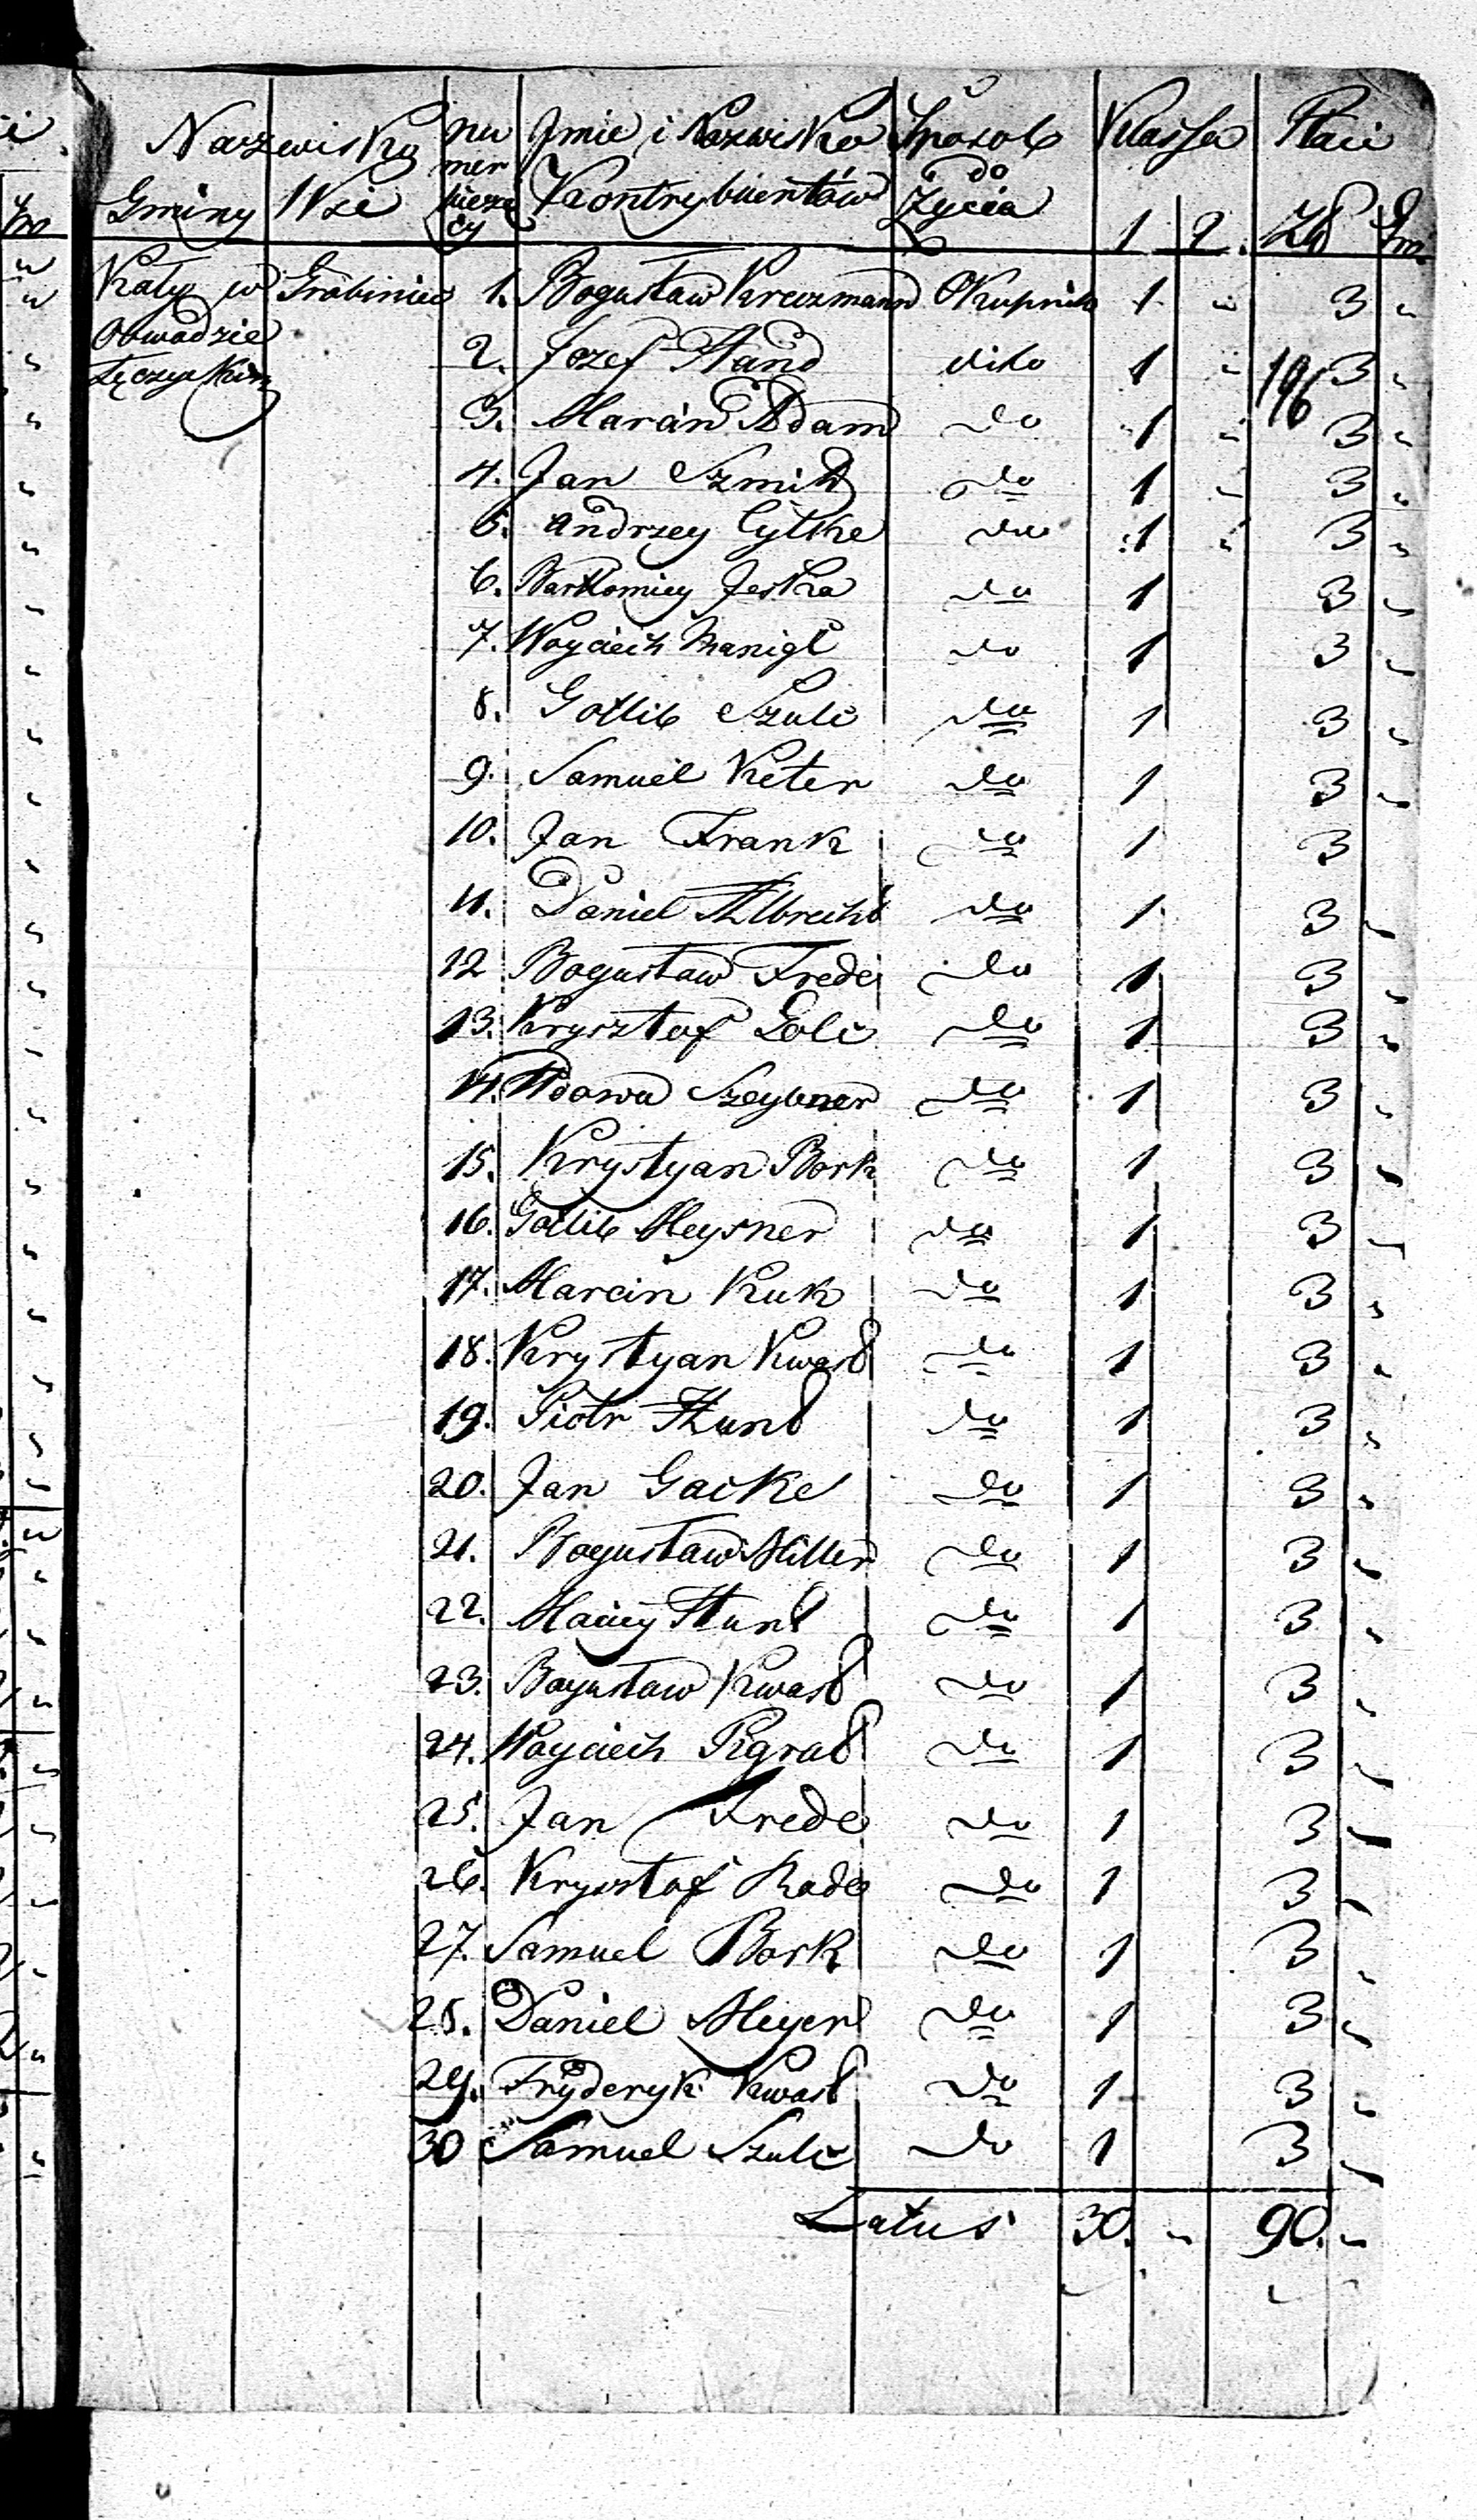 Nazwisko nu Jmie i Nazwisko Sposob Klassa Płaci
mer do
Gminy Wsi bieżą Kontrybuentów Życia
cy 1 2 Zł gr.
Kąty w Grabiniec 1. Bogusław Kreczmann Okupnik 1 " 3 "
Obwodzie
Łęczyckim
2. Jozef Hand dito 1 " 3 "
196
3. Marcin Adam do 1 " 3 "
4. Jan Szmidt do 1 " 3 "
5. Andrzey Cytke do 1 " 3 "
6. Bartłomiey Jeska do 1 3 "
7. Woyciech Manigl do 1 3 "
8. Gottlib Szulc do 1 3 "
9. Samuel Keter do 1 3 "
10. Jan Frank do 1 3
11. Daniel Albrecht do 1 3 "
12 Bogusław Frede do 1 3 "
13. Krysztof Golc do 1 3 "
14. Wdowa do 1 3 "
15. Krystyan Bork do 1 3 "
16. Gottlib Meysner do 1 3 "
17. Marcin Kuk do 1 3 "
18. Krystyan Kwast do 1 3 "
19. Piotr Hunt do 1 3 "
20. Jan Gacke do 1 3 "
21. Bogusław Miller do 1 3 "
22. Maciey Hunt do 1 3 "
23. Bogusław Kwast do 1 3 "
24. Woyciech do 1 3 "
25. Jan Frede do 1 3 "
26. Krysztof Rade do 1 3 "
27. Samuel Bork do 1 3 "
28. Daniel Meyer do 1 3 "
29. Fryderyk Kwast do 1 3 "
30 Samuel Szulc do 1 3 "
Latus 30. " 90. "